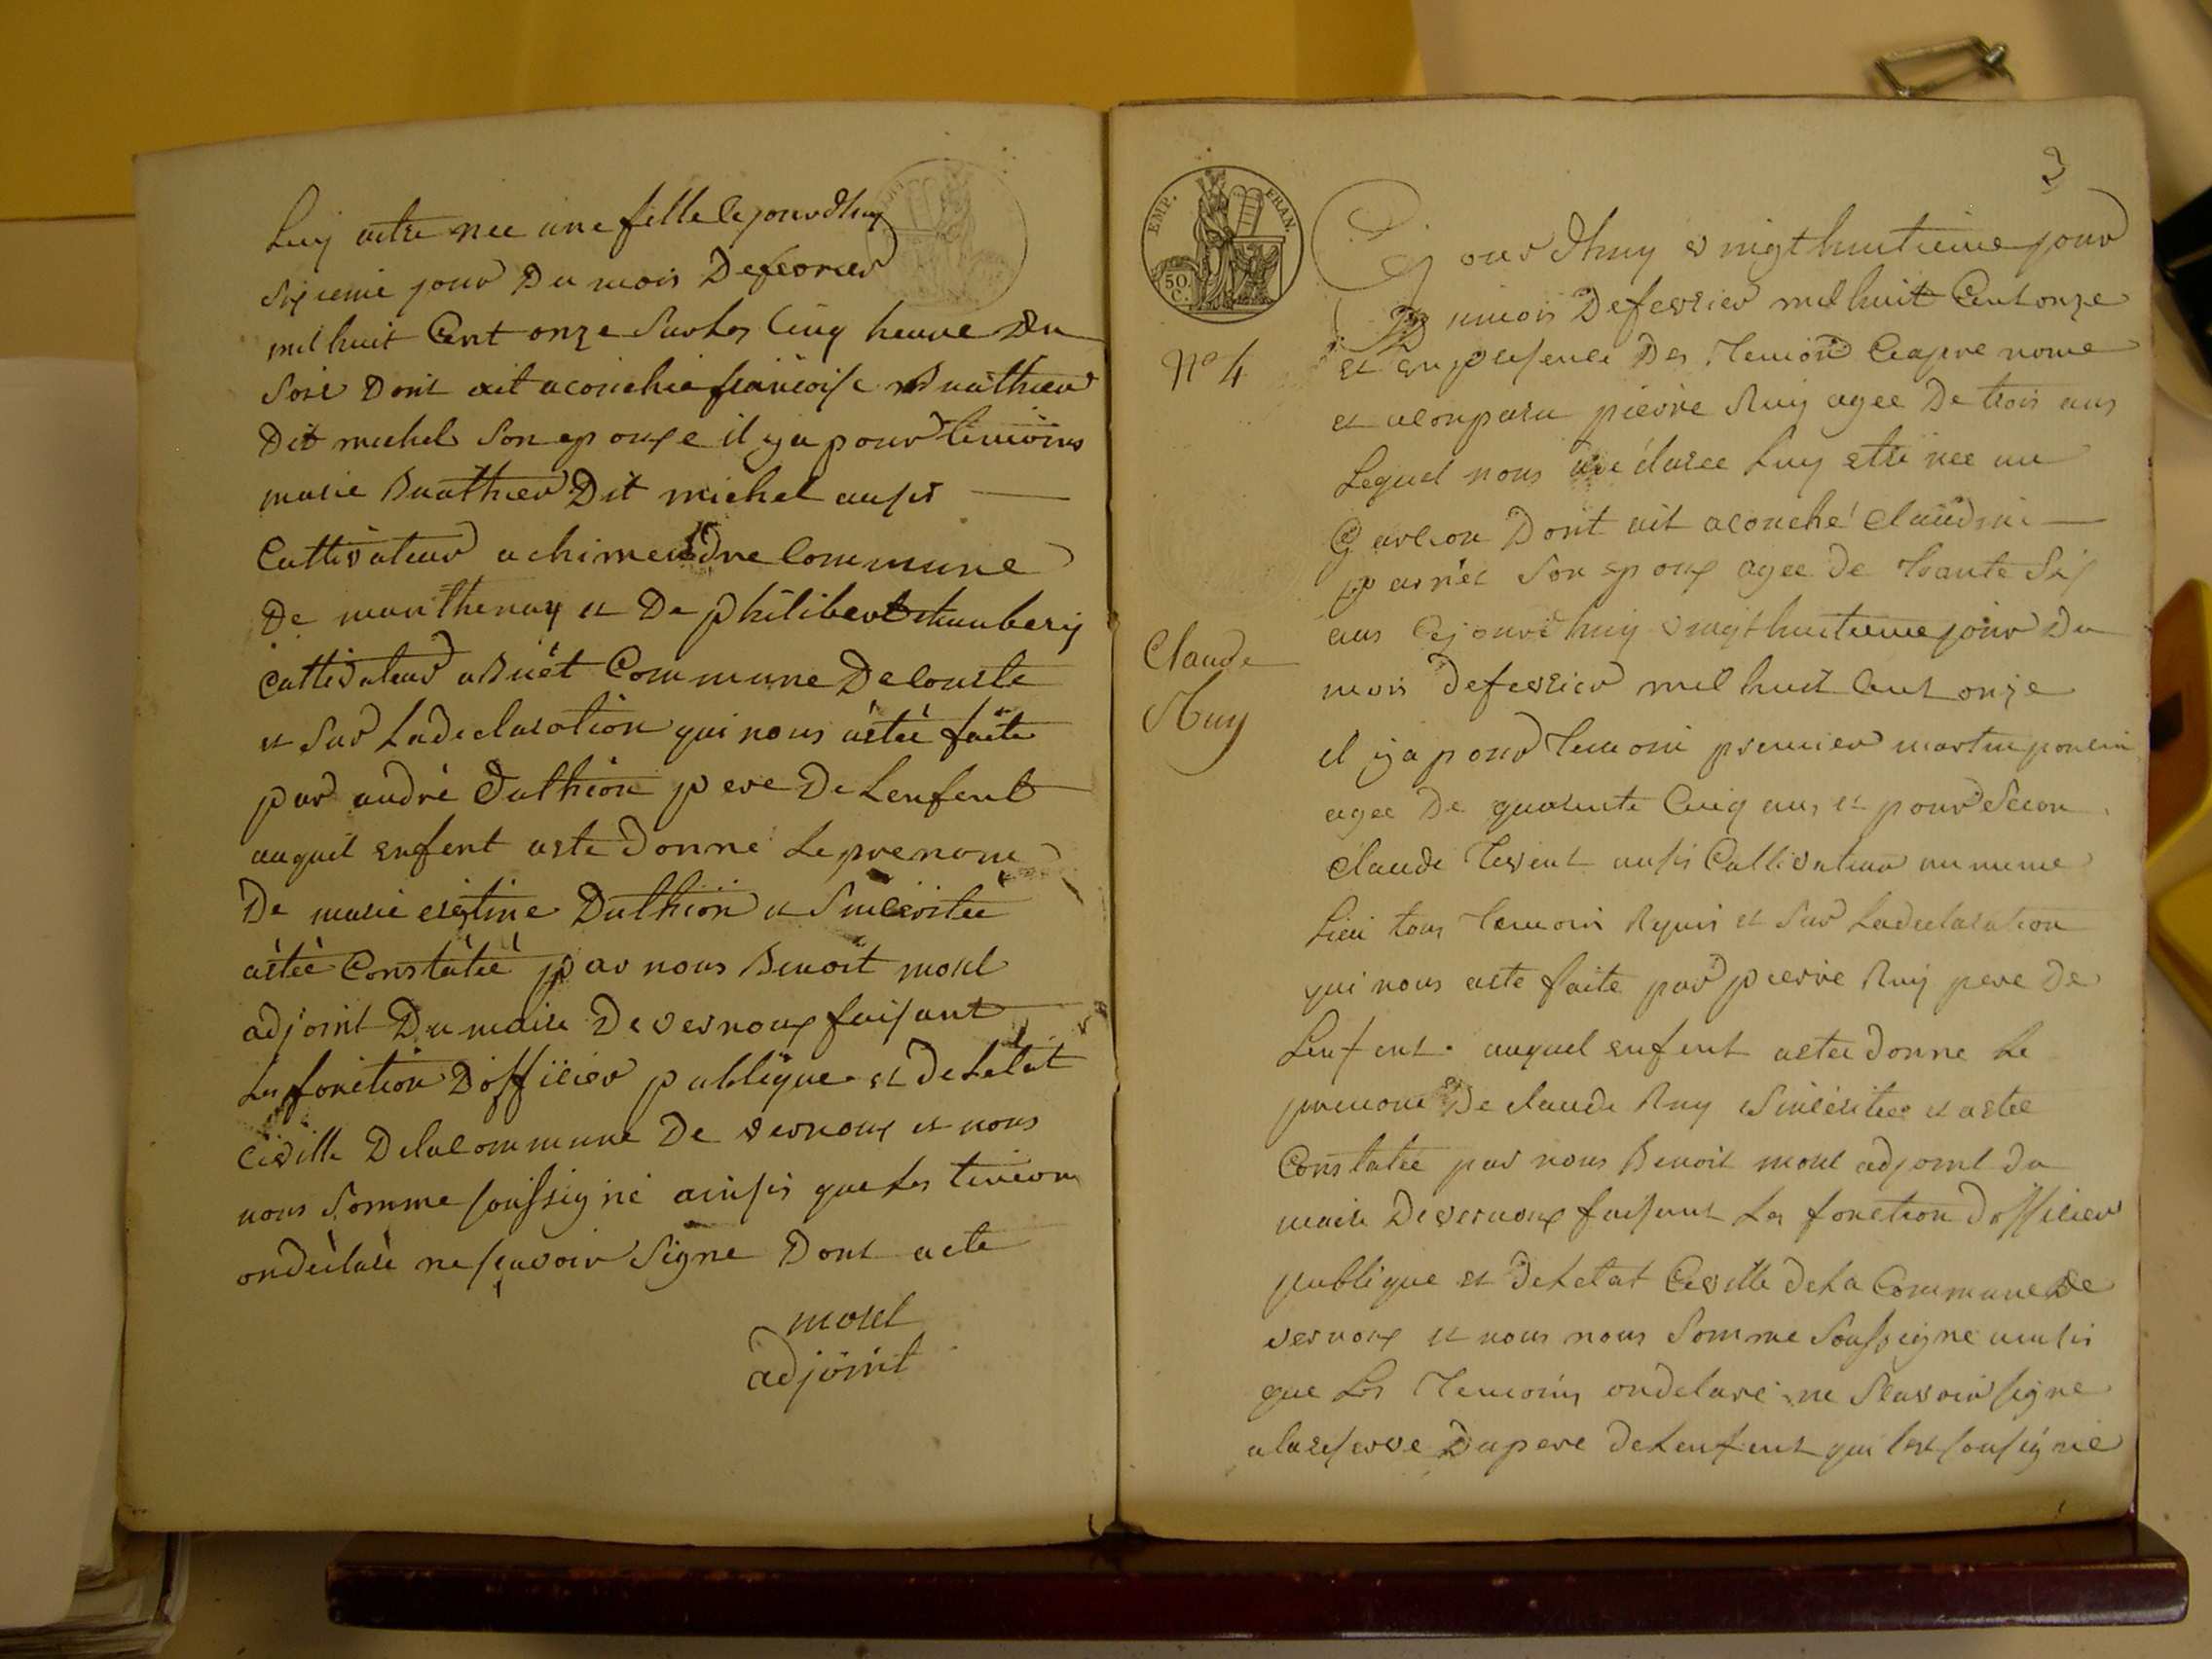 Luy aitre nee une fille cejourdhuy
Sixieme jour Du mois Defevrier
mil huit Cent onze Sur les Cinq heure Du
Soir Dont ait aconchie francoise Buathier
Dit michel Son epouxe il y a pour temoins
marie Buathier Dit michel aussi
Cultivateur a chimendre Commune
De manthenay et De philibert
Cultivateur a Buet Commune De
et Sur Ladeclaration qui nous astée faite
par andré Duthion pere De Lenfent
auquel enfent aste Donné Le prenom
De marie Duthion et Sincéritée
astée Constatée par nous Benoit morel
adjoint Du maire Devernoux faisant
Les fonction Dofficier publique et De Letat
Civille Delacommune De vernoux et nous
nous Somme soussigné ainsis que Les temoin
on déclaré ne scavoir Signe Dont acte
morel
adjoint
3
EMP. FRAN.
50. C.
Cejourdhuy vingt huitieme jour
Du mois Defevrier mil huit Cent onze
et en presence Des Temoin Ciapre nome
et a conparu pierre Ruy agee De trois ans
Lequel nous a declaree Luy etre nee un
Garcon Dont ait aconché Claudine
Son epoux agee de trante Six
ans Cejourdhuy vingt huitieme jour Du
mois Defevrier mil huit Cent onze
il y a pour Temoin premier martin poncin
agee De quarente Cinq ans et pour Secon
Claude Tevent aussis Cultivateur au meme
Lieu tous Temoin Requis et Sur Ladeclaration
qui nous aste faite par pierre Ruy pere De
Lenfent auquel enfent astee donne Le
prenom De claude Ruy Sincéritee et astee
Constatée par nous Benoit morel adjoint du
maire Devernoux faisant Les fonction Dofficier
publique et De Letat Civille De La Commune De
vernoux et nous nous Somme Soussigne ainsis
que Les Temoins on declaré ne Scavoir signe
a lareserve Du pere De Lenfent qui sest sousigné
No 4
Claude
Ruy